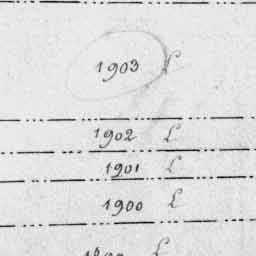 1903 L
1902 L
1901 L
1900 L
L